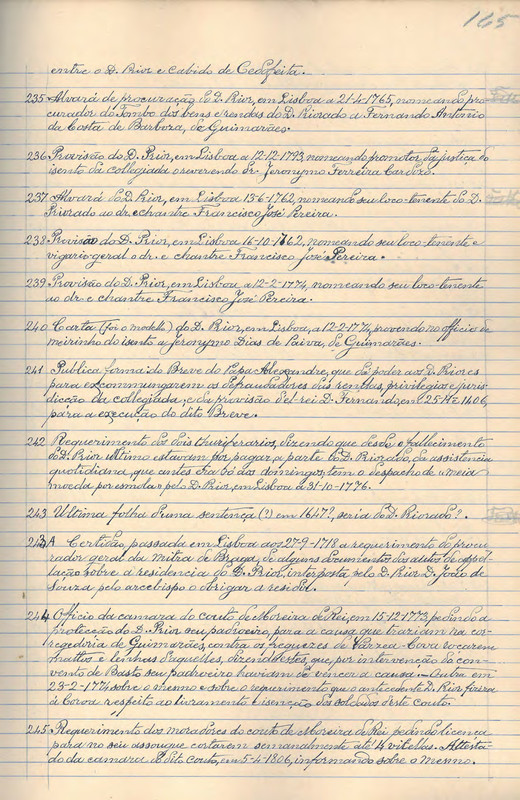 165
entre o D. Prior e cabido de Cedofeita.
235 Alvará de procuração do D. Prior, em Lisboa a 21-4-1765, nomeando pro-
curador do Tombo dos bens e rendas do D. Priorado a Fernando Antonio
da Costa de Barbora, de Guimarães.
236 Provisão do D. Prior, em Lisboa a 12-12-1793, nomeando promotor da justiça do
isento da collegiada o reverendo Sr. Jeronymo Ferreira Cardoso.
237 Alvará do D. Prior, em Lisboa 13-6-1762, nomeando seu loco-tenente do D.
Priorado ao dr. chantre Francisco José Pereira.
238 Provisão do D. Prior, em Lisboa 16-10-1762, nomeando seu loco-tenente e
vigario geral o dr. e chantre Francisco José Pereira.
239 Provisão do D. Prior, em Lisboa a 12-2-1774, nomeando seu loco-tenente
ao dr. e chantre Francisco José Pereira.
240 Carta (for o modello) do D. Prior, em Lisboa, a 12-2-1774, provendo no officio de
meirinho do isento a Jeronymo Dias de Paiva, de Guimarães.
241 Publica forma do Breve do Papa Alexandre, que dá poder aos D. Priores
para excommungarem os defraudadores das rendas, privilegios e juris-
dicção da collegiada, e da provisão d'el-rei D. Fernando, em 25 1406,
para a execução do dito Breve.
242 Requerimento dos dois thuriferarios, dizendo que desde o fallecimento
do D. Prior ultimo estavam por pagar a parte do D. Priorado, da assistencia
quotidiana, que antes era só aos domingos; tem o despacho de meia
moeda por esmola pelo D. Prior, em Lisboa a 31-10-1776.
243 Ultima folha d'uma sentença (?) em 1647?, seria do D. Priorado?.
243A Certidão, passada em Lisboa aos 27-9-1718 a requerimento do procu-
rador geral da Mitra de Braga, de alguns documentos dos autos de appel-
lação sobre a residencia do D. Prior, interposta pelo D. Prior D. João de
Souza, pelo arcebispo o obrigar a residir.
244 Officio da camara do couto de Moreira de Rei, em 15-12-1773, pedindo a
protecção do D. Prior seu padroeiro, para a causa que traziam na cor-
regedoria de Guimarães, contra os freguezes de Varzea-Cova rocarem
mattos e lenhas d'aquelles, dizendo estes, que, por intervenção do con-
vento de Basto seu padroeiro haviam de vencer a causa. — Outra em
23-2-1774 sobre o mesmo e sobre o requerimento que o antecedente D. Prior fizera
á Corôa respeito ao livramento e isenção dos soldados d'este couto.
245 Requerimento dos moradores do couto de Moreira de Rei pedindo licença
para no seu assougue cortarem semanalmente até 4 vitellas. Attesta-
do da camara do dito couto, em 5-4-1806, informando sobre o mesmo.